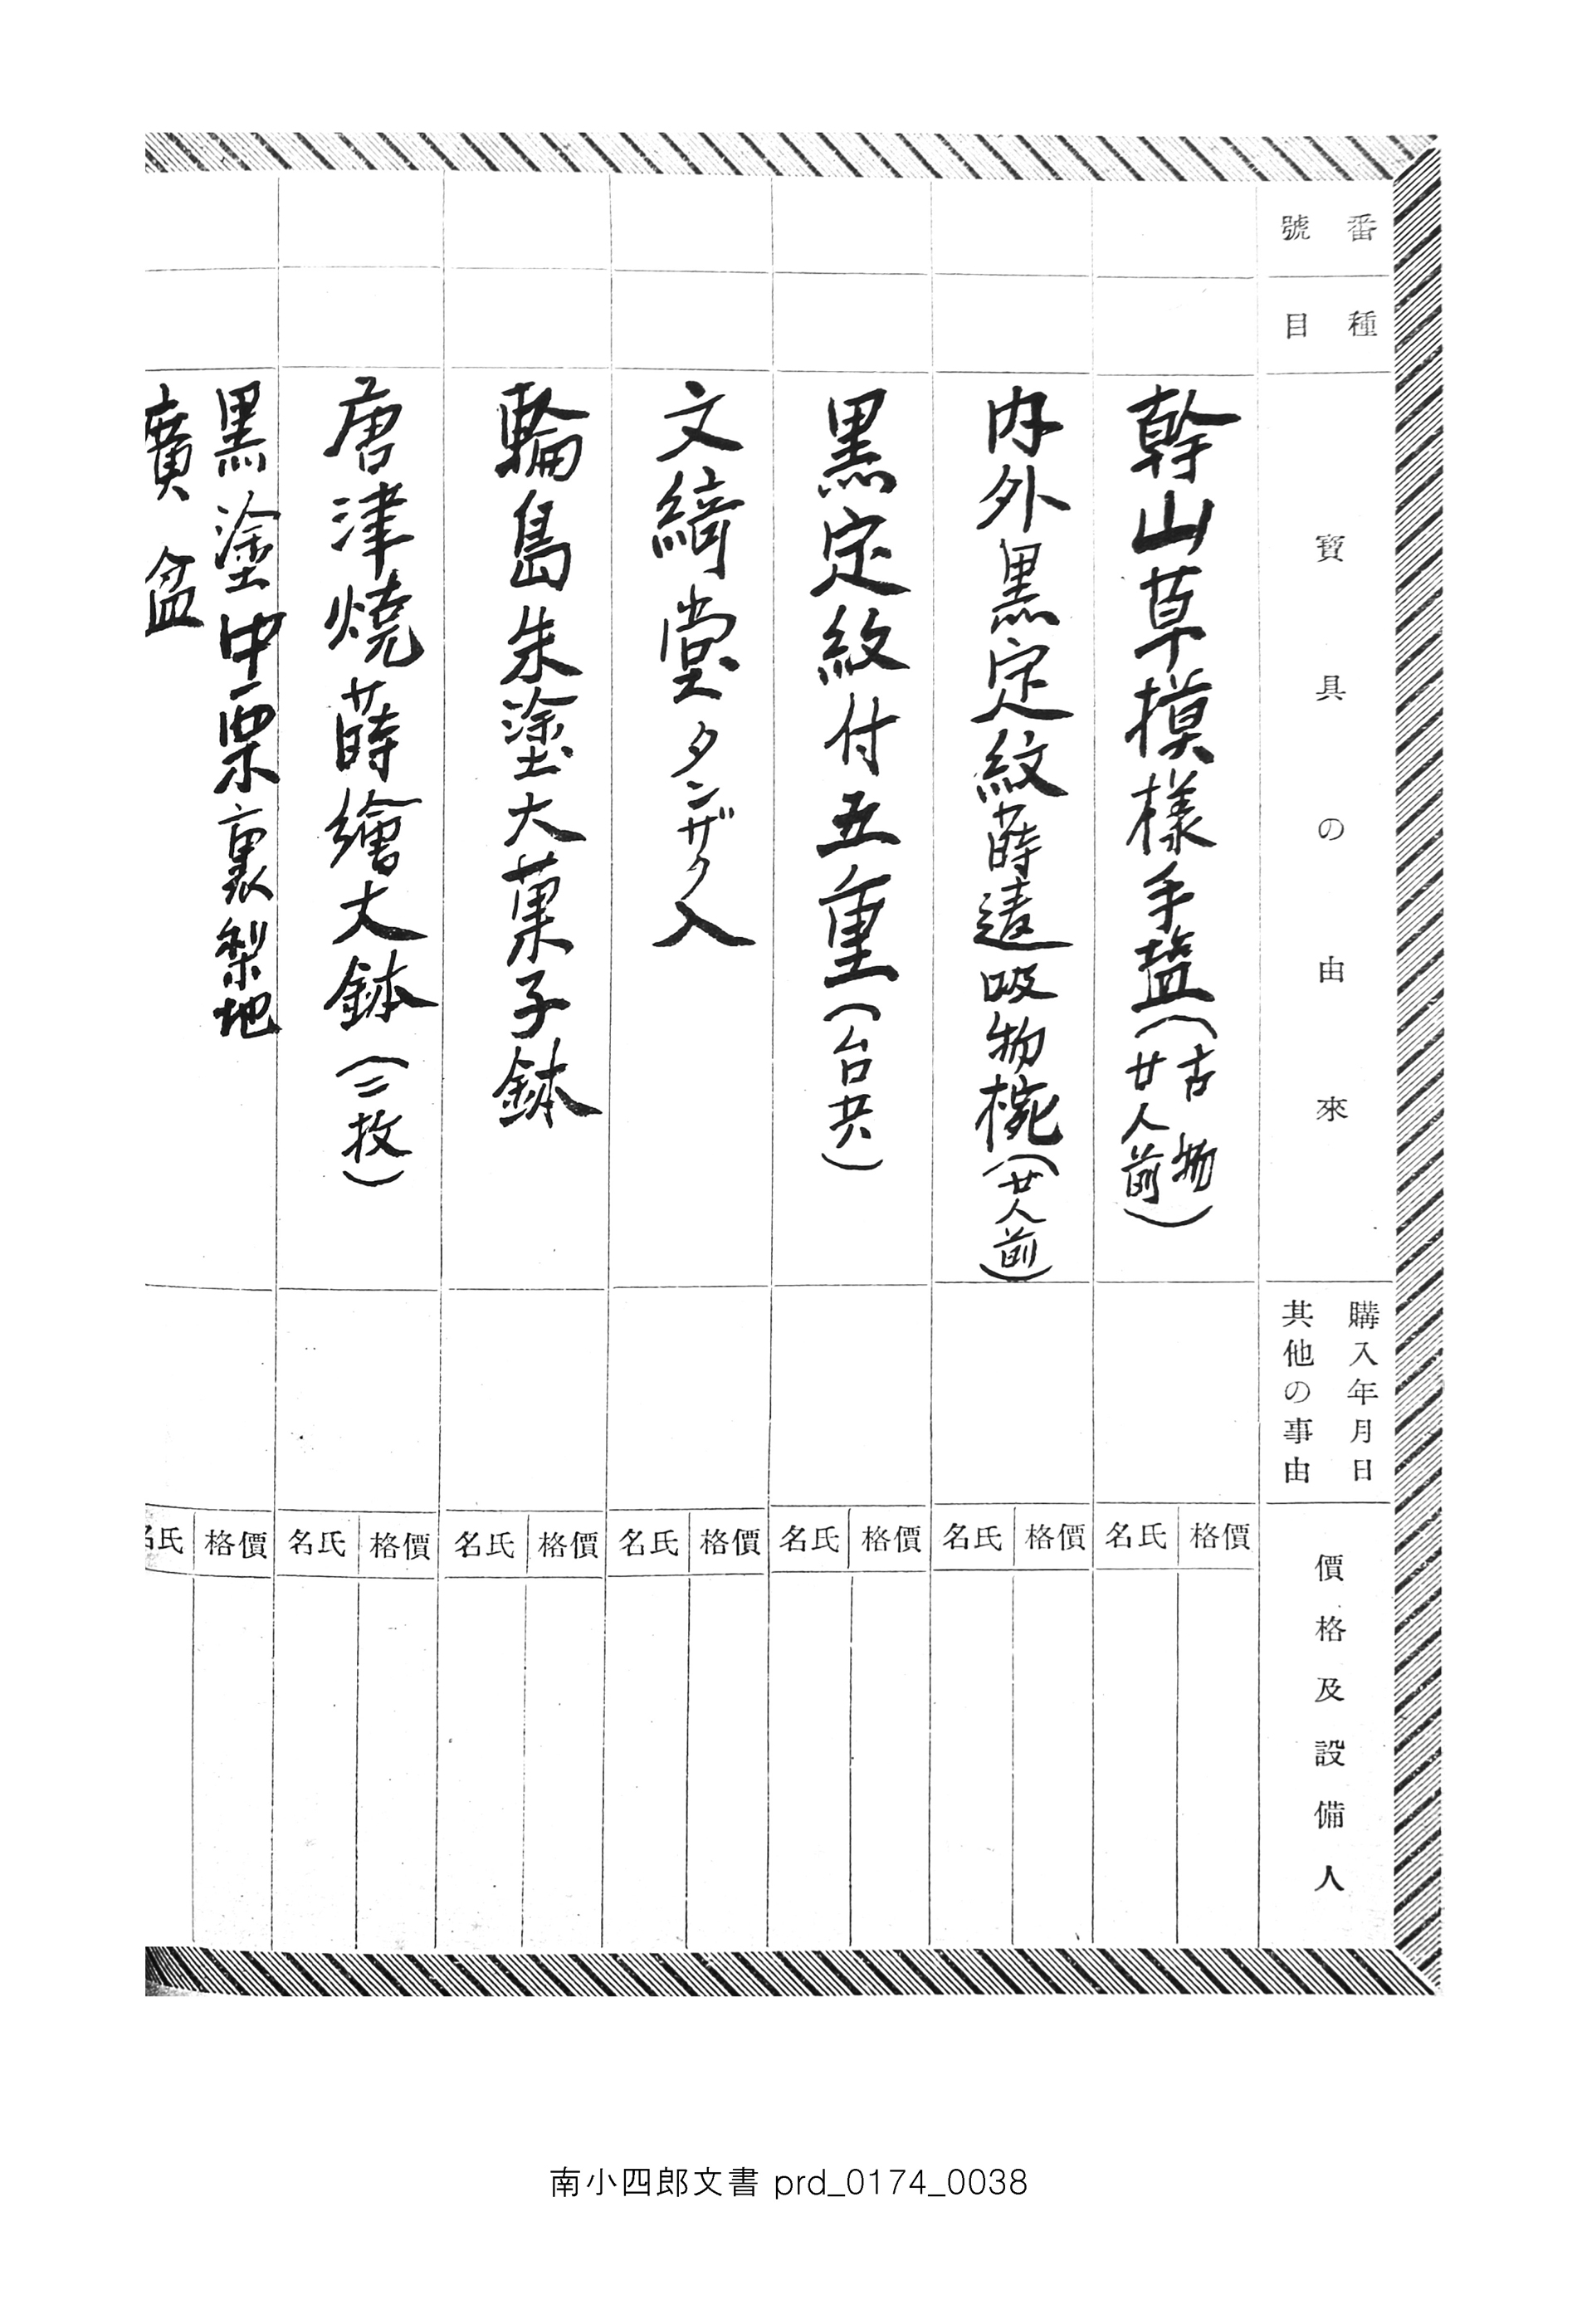 番號
種目
寶具の由來
購入年月日
其他の事由
價格及設備人
幹山草摸樣手塩(古物
廿人前)
內外黒定紋蒔遠吸物椀(廿人前)
黒定紋付五重(台共)
文綺堂タンザク入
輪島朱塗大菓子鉢
唐津燒蒔繪大鉢(二枚)
黒塗中栗裏梨地
廣盆
價格
氏名
價格
氏名
價格
氏名
價格
氏名
價格
氏名
價格
氏名
價格
氏名
南小四郎文書 prd_0174_0038